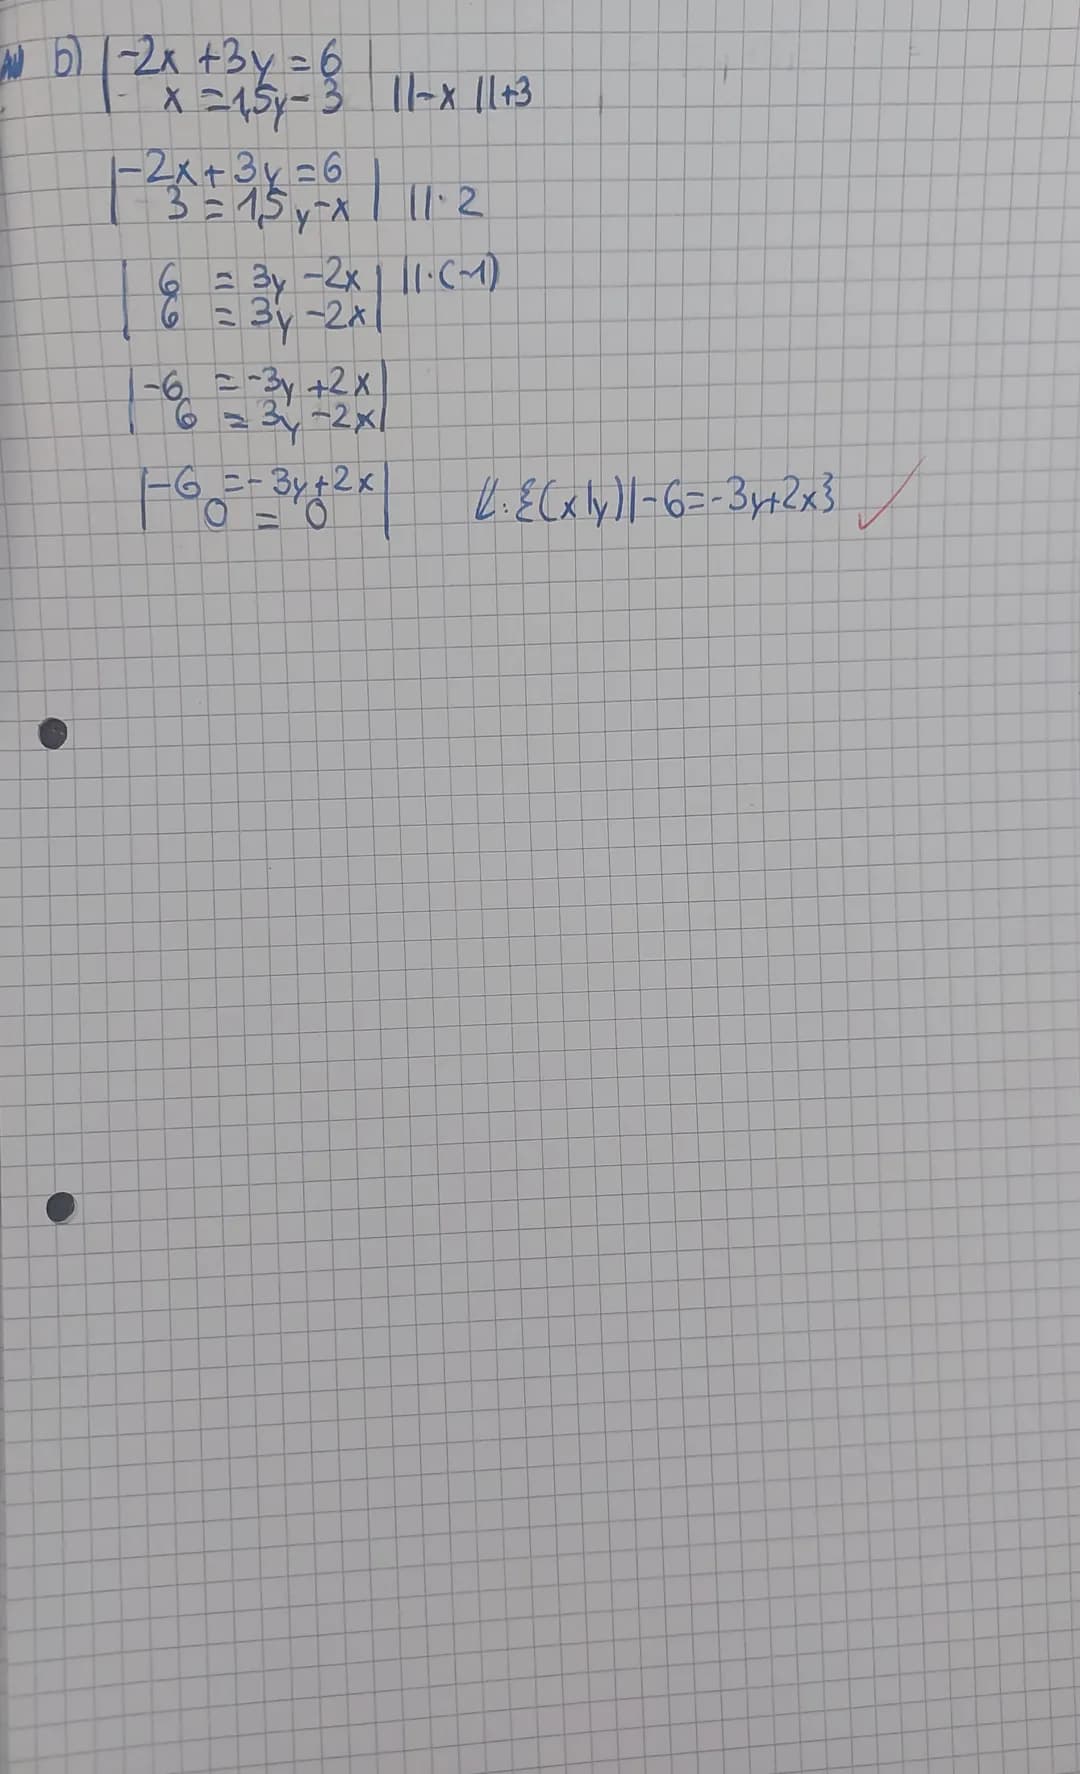 b) |-2x +3y = 6|
| x = 1,5y - 3| ||-x ||+3
|-2x + 3y = 6|
|3 = 1,5y -x| ||· 2
|6 = 3y -2x| ||·(-1)
|6 = 3y -2x|
|-6 = -3y +2x|
|6 = 3y -2x|
|-6 = -3y +2x|
|0 = 0| L: {(x|y)|-6=-3y+2x} ✓